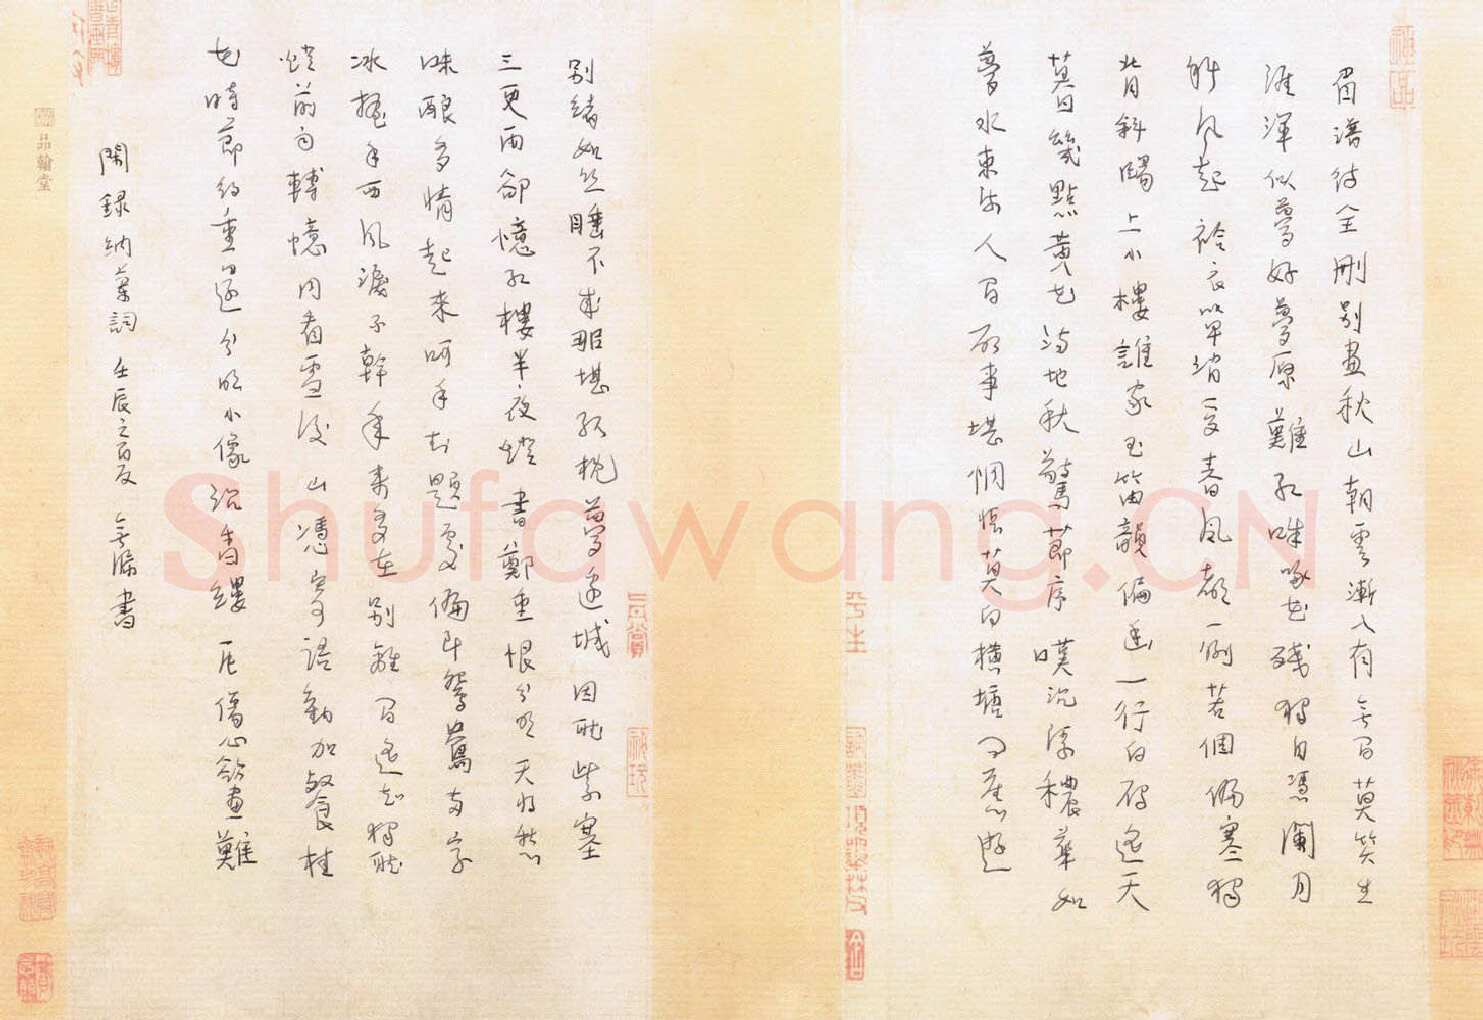 眉譜待全刪別畫秋山朝雲漸入有無間莫笑生
涯渾似夢好夢原難紅咮啄花殘獨自憑闌月
斜風起袷衣單消受春風都一例若個偏寒獨
背斜陽上小樓誰家玉笛韻偏幽一行白雁遙天
暮幾點黃花滿地秋驚節序嘆沉浮穠華如
夢水東流人間所事堪惆悵莫向橫塘問舊遊
別緒如絲睡不成那堪孤枕夢邊城因聽紫塞
三更雨卻憶紅樓半夜燈書鄭重恨分明天將愁
味釀多情起來呵手封題處偏到鴛鴦兩字
冰握手西風淚不幹年來多在別離間遙知獨聽
燈前雨轉憶同看雪後山憑寄語勸加餐桂
花時節約重還分明小像沉香縷一片傷心欲畫難
閑錄納蘭詞壬辰之夏無書
品翰堂
Shufawang.CN